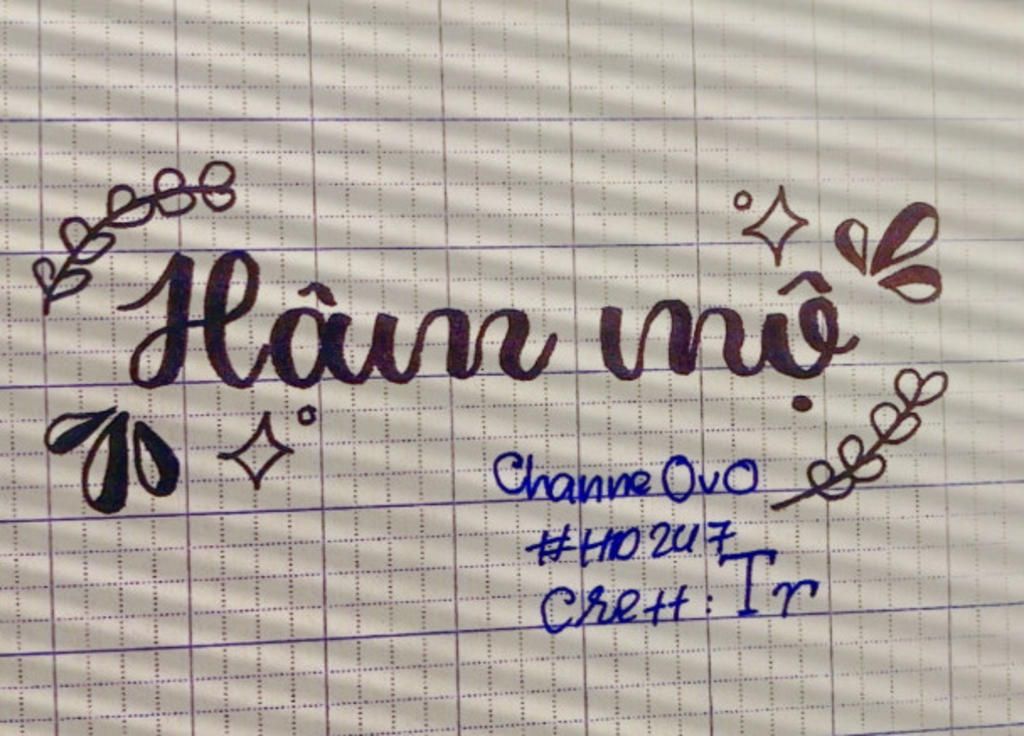 Hâm mộ
Channe OvO
#HD247
Crett: Tr